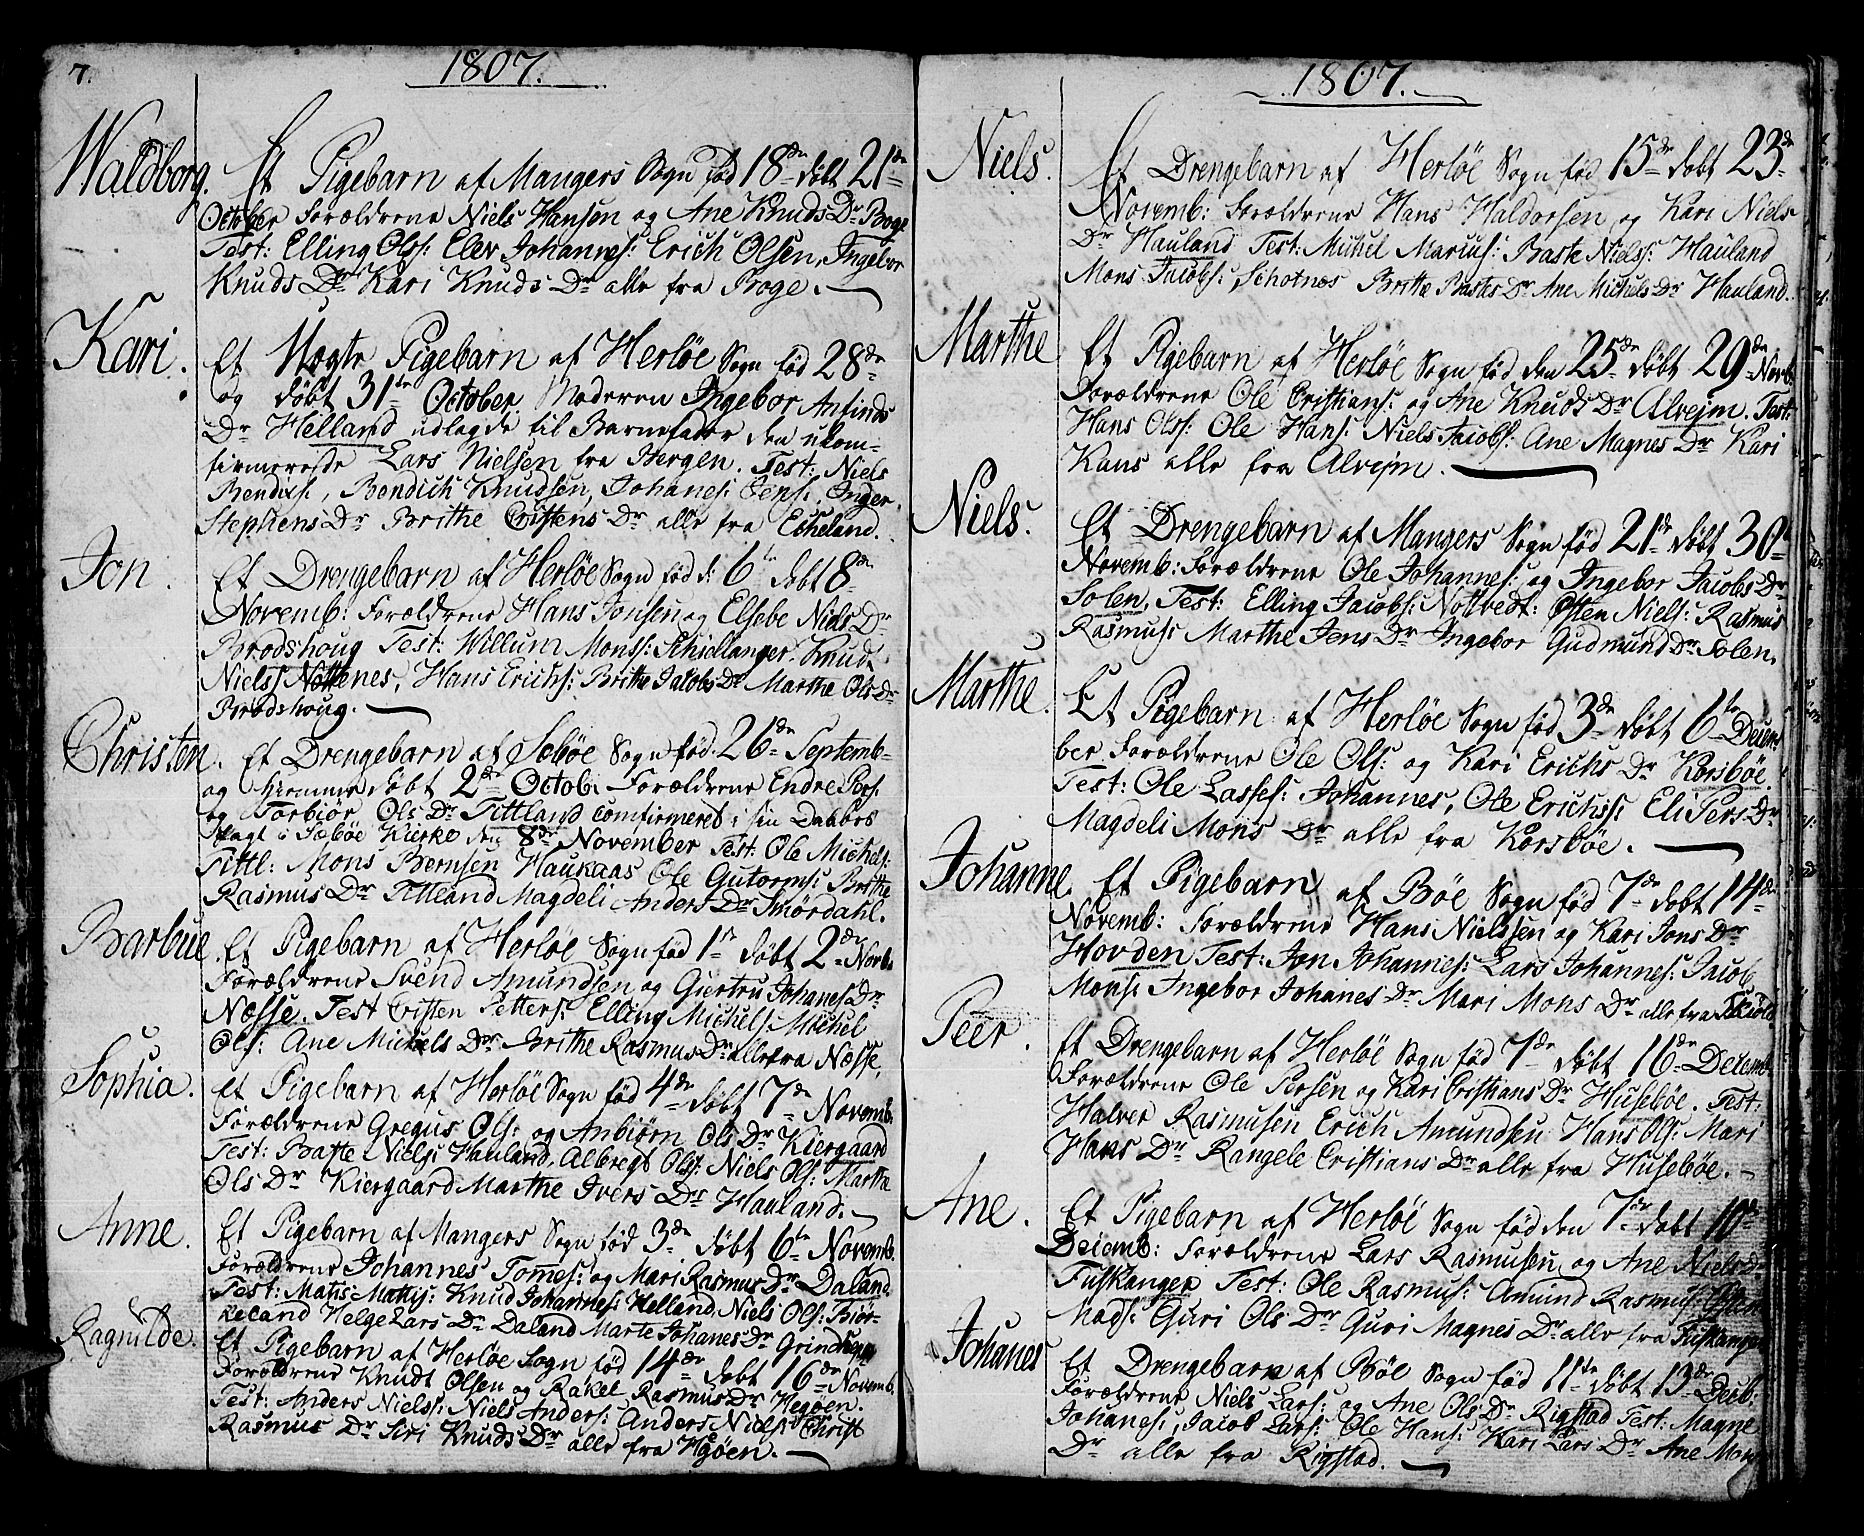 7.
1807.
Waldborg. Et Pigebarn af Mangers Sogn fød 18de døbt 21de
October Forældrene Niels Hansen og Ane Knuds Dr Boge
Test: Elling Ols: Elev Johannes: Erich Olsen, Ingebor
Knuds Dr Kari Knuds Dr alle fra Boge.
Kari. Et Uægte Pigebarn af Herløe Sogn fød 28de
og døbt 31te October Moderen Ingebor Anfinds
Dr Helland udlagde til Barnefader den ukom-
firmerede Lars Nielsen fra Bergen. Test: Niels
Bendixs:, Bendich Knudsen, Johanes: Jens:, Inger
Stephens Dr Brithe Cristens Dr alle fra Echeland.
Jon. Et Drengebarn af Herløe Sogn fød d: 6te døbt 8de
Novemb: Forældrene Hans Jonsen og Elsebe Niels Dr
Brodshoug Test: Willum Mons: Schidlanger, Knud
Niels: Nøttenes, Hans Erichs: Brithe Jacobs Dr Marthe Ols Dr
Brodshoug.
Christen. Et Drengebarn af Sæbøe Sogn fød 26de Septemb-
og hiemmedøbt 2de Octob: Forældrene Endre Pers:
og Torbiør Ols Dr Tittland comfirmeret i sin Daabes
Pagt i Sæbøe Kirke den 8de November Test: Ole Michels:
Tittl: Mons Bernsen Haukaas Ole Gutorms: Brithe
Rasmus Dr Tittland Magdeli Anders Dr Smørdahl.
Barbue. Et Pigebarn af Herløe Sogn fød 1te døbt 2de Novb.
Forældrene Svend Amundsen og Giertru Johanes Dr
Næsse. Test Cristen Petters: Elling Michels: Michel
Ols: Ane Michels Dr Brithe Rasmus Dr alle fra Næsse.
Sophia. Et Pigebarn af Herløe Sogn fød 4de døbt 7de Novemb.
Forældrene Gregus Ols: og Anbiørn Ols Dr Kiergaard
Test: Baste Niels: Hauland, Albregt Ols: Niels Ols: Marthe
Ols Dr Kiergaard Marthe Ivers Dr Hauland.
Anne. Et Pigebarn af Mangers Sogn fød 3de døbt 6te Novemb.
Forældrene Johannes Tomes: og Mari Rasmus Dr Daland
Test: Matis Matis: Knud Johannes: Helland, Niels Ols: Biør-
keland Helge Lars Dr Daland Marte Johanes Dr
Ragnilde. Et Pigebarn af Herløe Sogn fød 14de døbt 16de Novemb.
Forældrene Knudt Olsen og Rakel Rasmus Dr Hegøen.
Test: Anders Niels: Niels Anders: Anders Niels: Christ
Rasmus Dr Siri Knuds Dr alle fra Hegøen.
1807.
Niels. Et Drengebarn af Herløe Sogn fød 15de døbt 23de
Novemb: Forældrene Hans Haldorsen og Kari Niels
Dr Hauland Test: Michel Marius: Baste Niels: Hauland
Mons Jacobs: Schotnes Brithe Bastes Dr Ane Michels Dr Hauland.
Marthe Et Pigebarn af Herløe Sogn fød den 25de døbt 29de Novb.
Forældrene Ole Cristians: og Ane Knuds Dr Alvejm. Test:
Hans Ols: Ole Hans: Niels Jacobs: Ane Magnes Dr Kari
Hans alle fra Alvejm.
Niels. Et Drengebarn af Mangers Sogn fød 21de døbt 30te
Novemb: Forældrene Ole Johannes: og Ingebor Jacobs Dr
Solen, Test: Elling Jacobs: Nottvedt: Østen Niels: Rasmus
Rasmus: Marthe Jens Dr Ingebor Gudmund Dr Solen.
Marthe. Et Pigebarn af Herløe Sogn fød 3de døbt 6te Decem-
ber Forældrene Ole Ols: og Kari Erichs Dr Korsbøe.
Test: Ole Lasses: Johannes, Ole Erichs: Eli Pers Dr
Magdeli Mons Dr alle fra Korsbøe.
Johanne Et Pigebarn af Bøe Sogn fød 7de døbt 14de
Novemb: Forældrene Hans Nielssen og Kari Jons Dr
Hovden Test: Jon Johannes: Lars Johannes: Jacob
Mons: Ingebor Johanes Dr Mari Mons Dr alle fra
Peer. Et Drengebarn af Herløe Sogn fød 7de døbt 16de Decemb.
Forældrene Ole Persen og Kari Cristians Dr Husebøe. Test:
Halver Rasmusen Erich Amundsen Hans Ols: Mari
Hans Dr Rangele Cristians Dr alle fra Husebøe.
Ane. Et Pigebarn af Herløe Sogn fød den 7de døbt 10de
Decemb: Forældrene Lars Rasmusen og Ane Niels Dr
Tuskanger Test: Ole Rasmus: Amund Rasmus: Østen
Mads: Guri Ols Dr Guri Magnes Dr alle fra Tuskanger
Johanes Et Drengebarn af Bøe Sogn fød 11te døbt 13de Decb.
Forældrene Niels Lars: og Ane Ols Dr Rigstad Test: Magne
Johanes:, Jacob Lars: Ole Hans: Kari Lars Dr Ane Mons
Dr alle fra Rigstad.